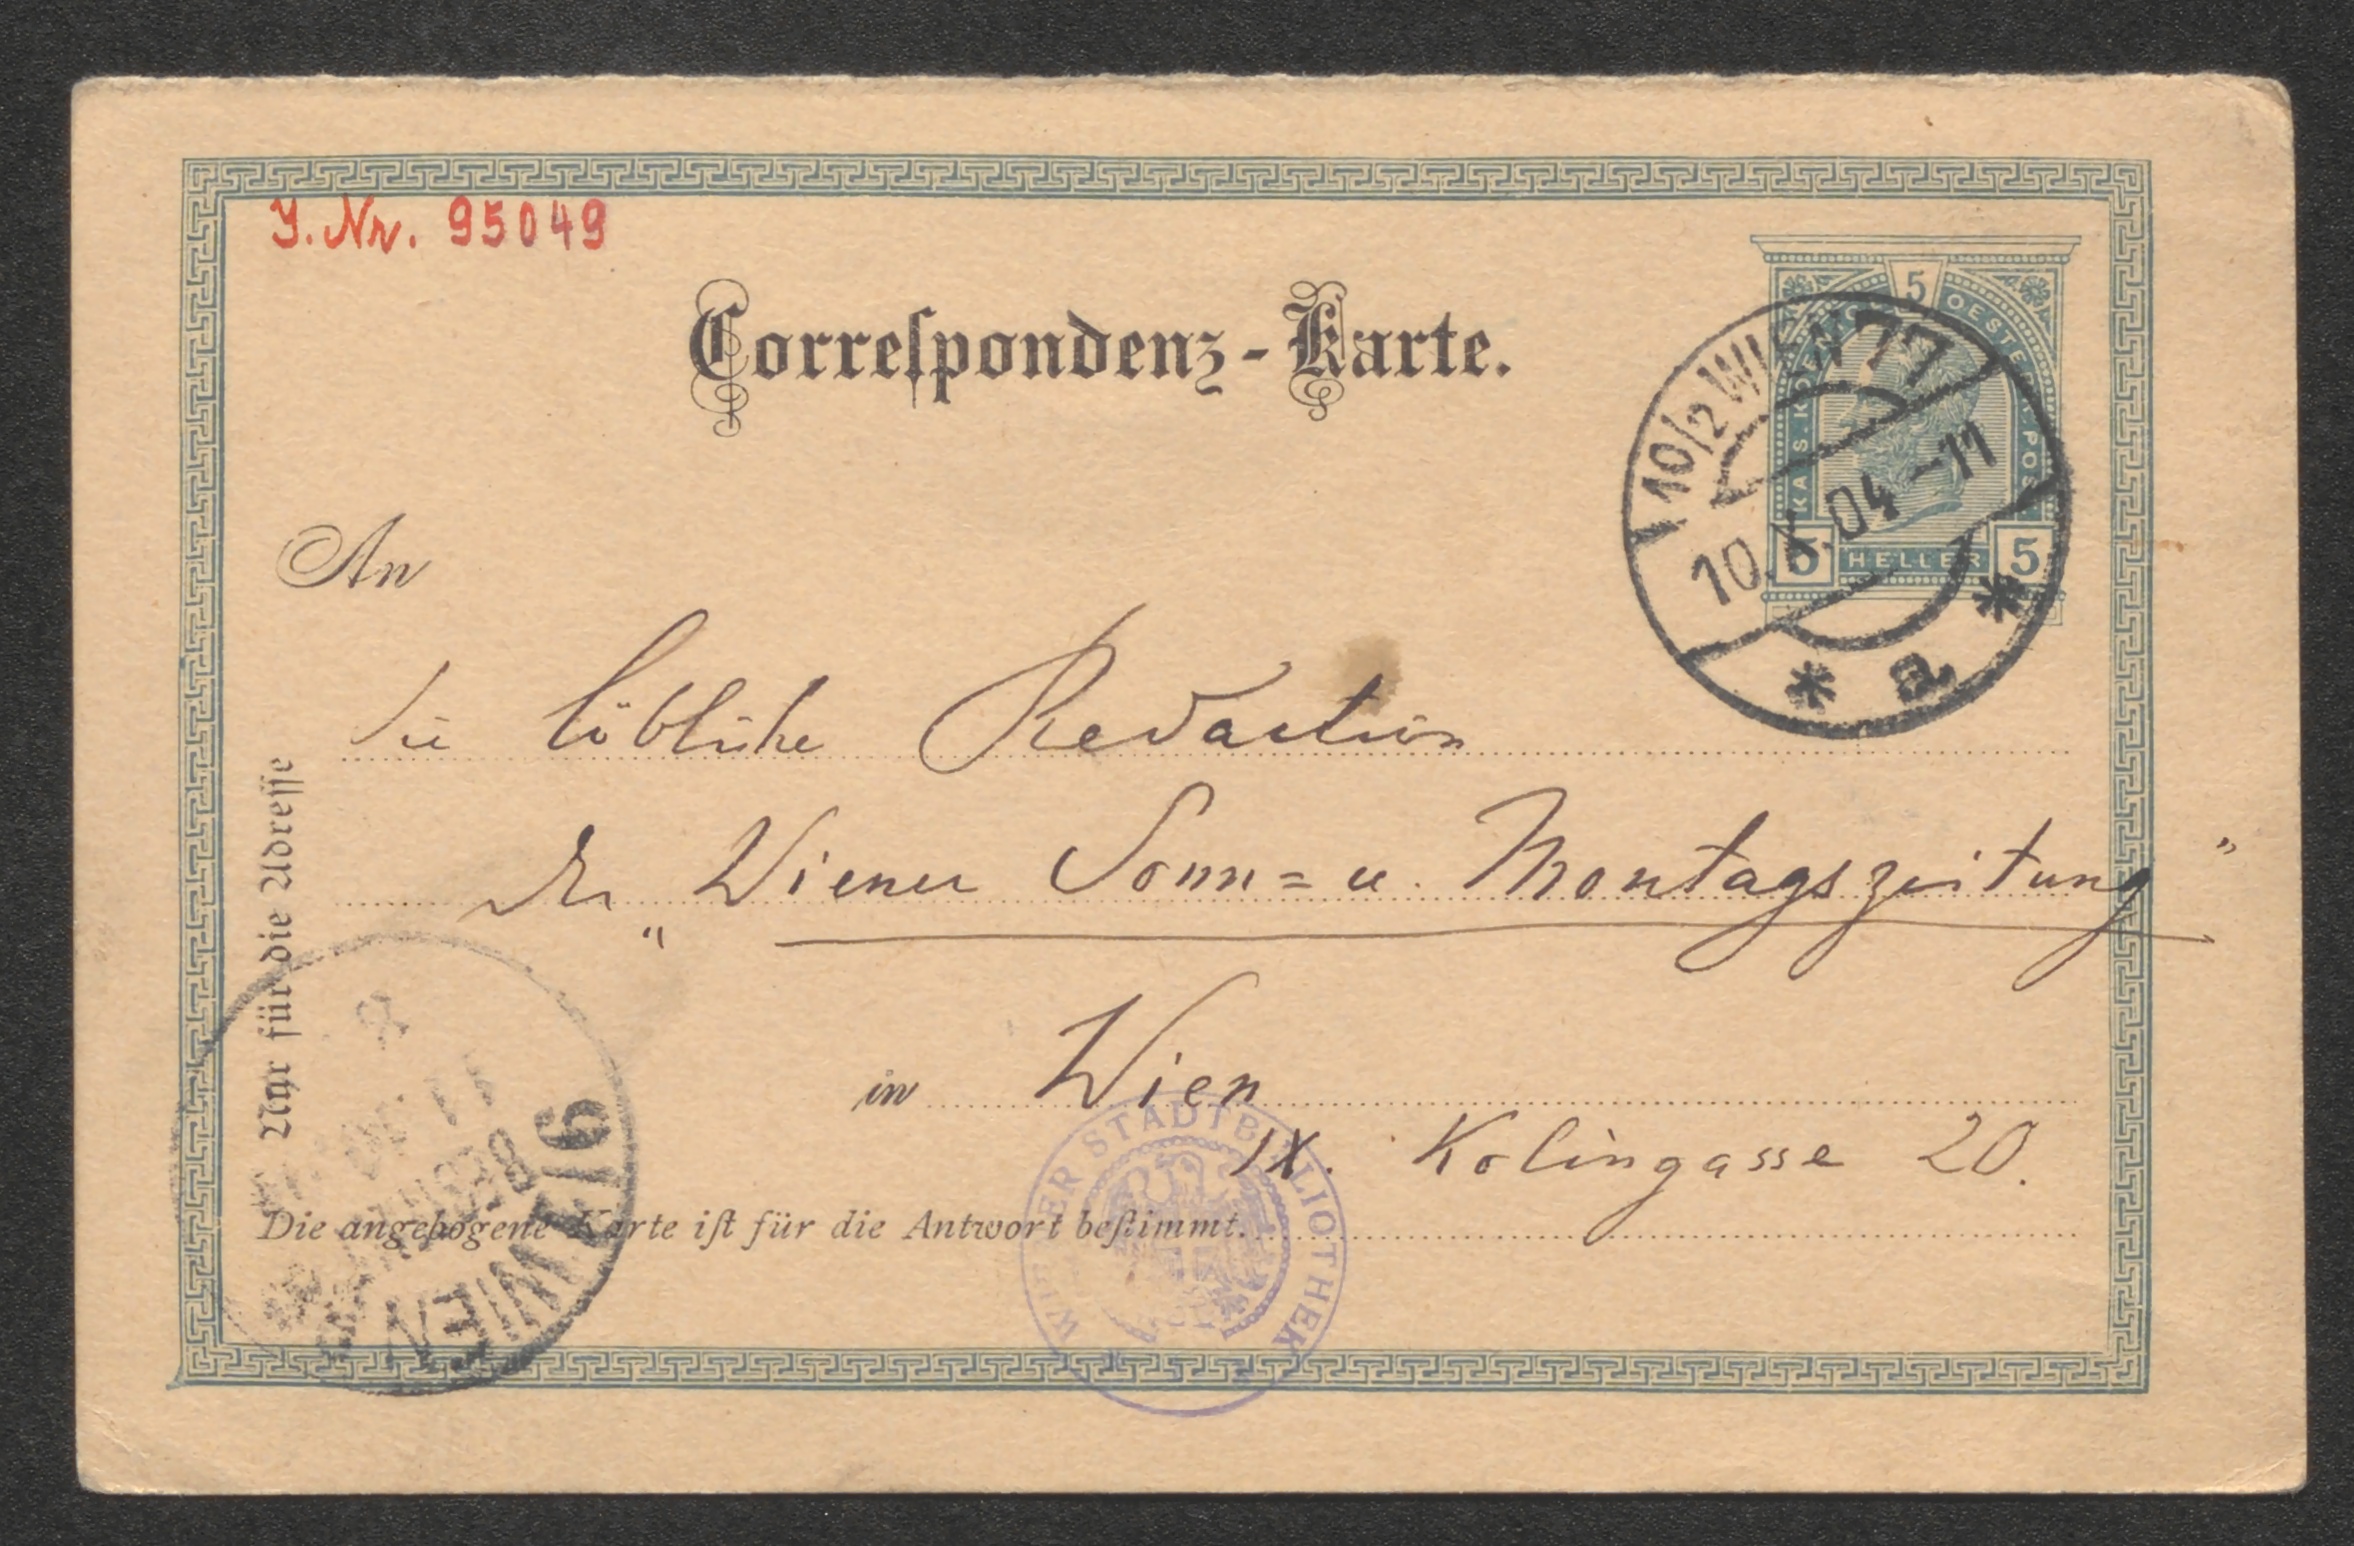 J. Nr. 95049
Correſpondenz-Karte.
5
KAIS. KOEN OESTERR. POST
5 HELLER 5
10/2 WIEN 77
10. .04 -11
* a *
An
die löbliche Redaction
der „Wiener Sonn= u. Montagszeitung"
in Wien
IX. Kolingasse 20.
Nur für die Adreſſe
Die angebogene Karte iſt für die Antwort beſtimmt.
9/1 WIEN
WIENER STADTBIBLIOTHEK